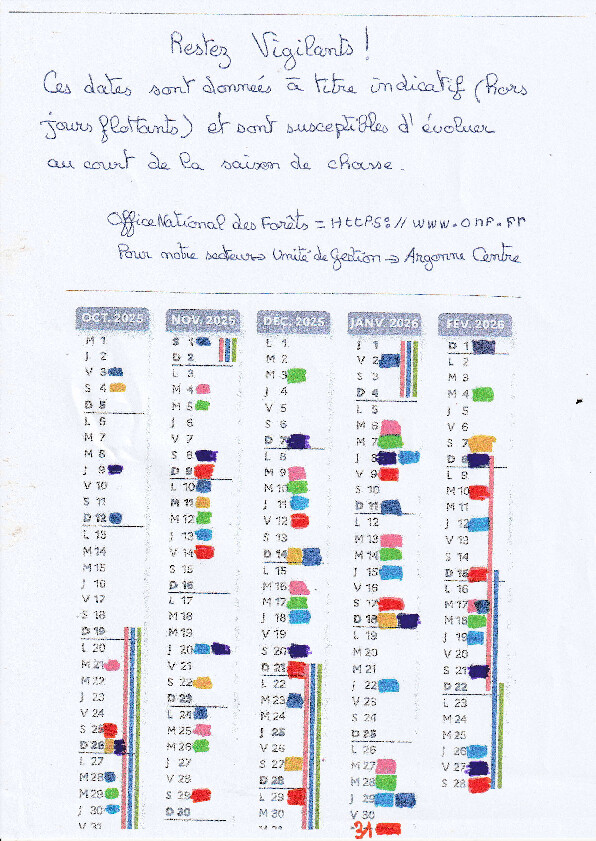 Restez Vigilants !
Ces dates sont données à titre indicatif (hors
jours flottants) et sont susceptibles d'évoluer
au court de la saison de chasse.
Office National des Forêts = HttPS://www.onf.fr
Pour notre secteur → Unité de Gestion → Argonne Centre
OCT. 2025
M 1
J 2
V 3
S 4
D 5
L 6
M 7
M 8
J 9
V 10
S 11
D 12
L 13
M 14
M 15
J 16
V 17
S 18
D 19
L 20
M 21
M 22
J 23
V 24
S 25
D 26
L 27
M 28
M 29
J 30
V 31
NOV. 2025
S 1
D 2
L 3
M 4
M 5
J 6
V 7
S 8
D 9
L 10
M 11
M 12
J 13
V 14
S 15
D 16
L 17
M 18
M 19
J 20
V 21
S 22
D 23
L 24
M 25
M 26
J 27
V 28
S 29
D 30
DÉC. 2025
L 1
M 2
M 3
J 4
V 5
S 6
D 7
L 8
M 9
M 10
J 11
V 12
S 13
D 14
L 15
M 16
M 17
J 18
V 19
S 20
D 21
L 22
M 23
M 24
J 25
V 26
S 27
D 28
L 29
M 30
M 31
JANV. 2026
J 1
V 2
S 3
D 4
L 5
M 6
M 7
J 8
V 9
S 10
D 11
L 12
M 13
M 14
J 15
V 16
S 17
D 18
L 19
M 20
M 21
J 22
V 23
S 24
D 25
L 26
M 27
M 28
J 29
V 30
31
FÉV. 2026
D 1
L 2
M 3
M 4
J 5
V 6
S 7
D 8
L 9
M 10
M 11
J 12
V 13
S 14
D 15
L 16
M 17
M 18
J 19
V 20
S 21
D 22
L 23
M 24
M 25
J 26
V 27
S 28